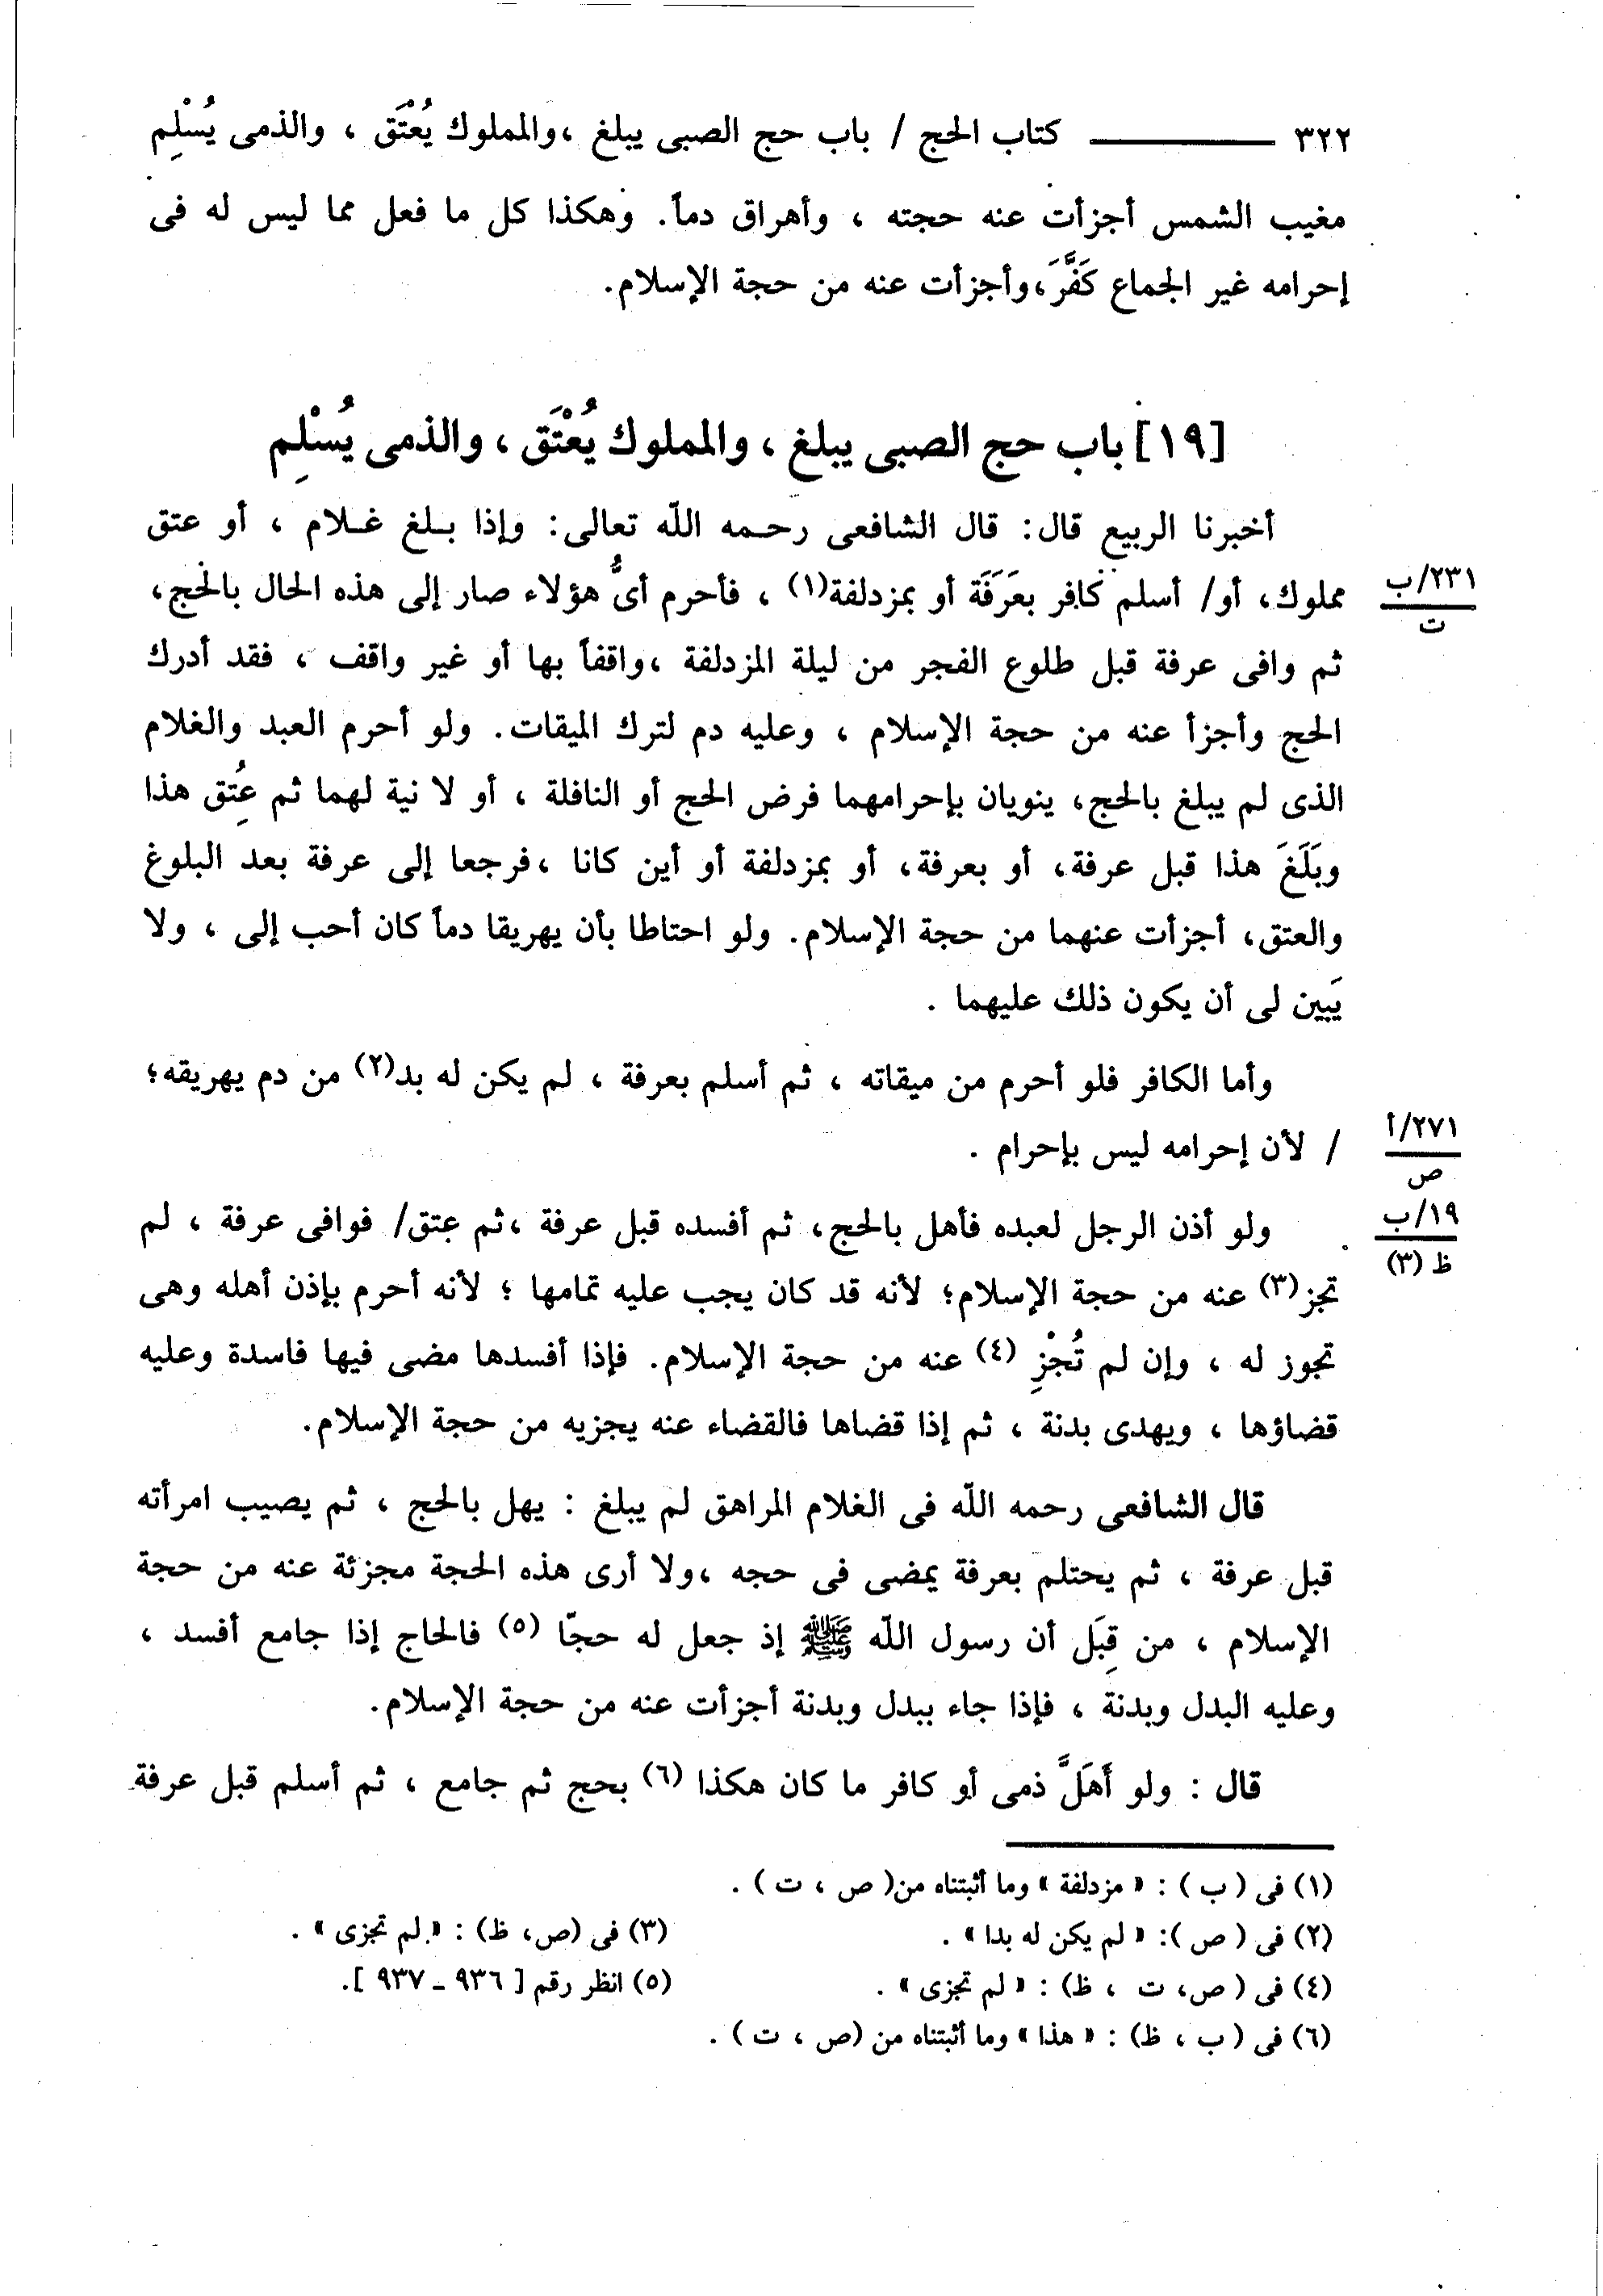 ٣٢٢ ــــــــــــ كتاب الحج / باب حج الصبى يبلغ ،والمملوك يُعْتَق ، والذمى يُسْلِم
مغيب الشمس أجزأت عنه حجته ، وأهراق دماً. وهكذا كل ما فعل مما ليس له فى
إحرامه غير الجماع كَفَّرَ،وأجزأت عنه من حجة الإسلام.
[١٩] باب حج الصبى يبلغ ، والمملوك يُعْتَق ، والذمى يُسْلِم
أخبرنا الربيع قال: قال الشافعى رحمه الله تعالى: وإذا بلغ غلام ، أو عتق
مملوك، أو/ أسلم كافر بعَرَفَة أو بمزدلفة(١) ، فأحرم أىُّ هؤلاء صار إلى هذه الحال بالحج،
٢٣١/ب
ت
ثم وافى عرفة قبل طلوع الفجر من ليلة المزدلفة ،واقفاً بها أو غير واقف ، فقد أدرك
الحج وأجزأ عنه من حجة الإسلام ، وعليه دم لترك الميقات. ولو أحرم العبد والغلام
الذى لم يبلغ بالحج، ينويان بإحرامهما فرض الحج أو النافلة ، أو لا نية لهما ثم عُتِق هذا
وبَلَغَ هذا قبل عرفة، أو بعرفة، أو بمزدلفة أو أين كانا ،فرجعا إلى عرفة بعد البلوغ
والعتق، أجزأت عنهما من حجة الإسلام. ولو احتاطا بأن يهريقا دماً كان أحب إلى ، ولا
يَبين لى أن يكون ذلك عليهما .
وأما الكافر فلو أحرم من ميقاته ، ثم أسلم بعرفة ، لم يكن له بد(٢) من دم يهريقه؛
/ لأن إحرامه ليس بإحرام .
٢٧١/أ
ص
ولو أذن الرجل لعبده فأهل بالحج، ثم أفسده قبل عرفة ،ثم عتق/ فوافى عرفة ، لم
١٩/ب
ظ (٣)
تجز(٣) عنه من حجة الإسلام؛ لأنه قد كان يجب عليه تمامها ؛ لأنه أحرم بإذن أهله وهى
تجوز له ، وإن لم تُجْزِ (٤) عنه من حجة الإسلام. فإذا أفسدها مضى فيها فاسدة وعليه
قضاؤها ، ويهدى بدنة ، ثم إذا قضاها فالقضاء عنه يجزيه من حجة الإسلام.
قال الشافعى رحمه الله فى الغلام المراهق لم يبلغ : يهل بالحج ، ثم يصيب امرأته
قبل عرفة ، ثم يحتلم بعرفة يمضى فى حجه ،ولا أرى هذه الحجة مجزئة عنه من حجة
الإسلام ، من قِبَل أن رسول الله ﷺ إذ جعل له حجّا (٥) فالحاج إذا جامع أفسد ،
وعليه البدل وبدنة ، فإذا جاء ببدل وبدنة أجزأت عنه من حجة الإسلام.
قال : ولو أَهَلَّ ذمى أو كافر ما كان هكذا (٦) بحج ثم جامع ، ثم أسلم قبل عرفة
(١) فى ( ب ) : « مزدلفة » وما أثبتناه من( ص ، ت ) .
(٢) فى ( ص ): « لم يكن له بدا » .
(٣) فى (ص، ظ) : « لم تجزى » .
(٤) فى ( ص، ت ، ظ) : « لم تجزى » .
(٥) انظر رقم [ ٩٣٦ ـ ٩٣٧ ].
(٦) فى ( ب ، ظ) : « هذا » وما أثبتناه من (ص ، ت ) .